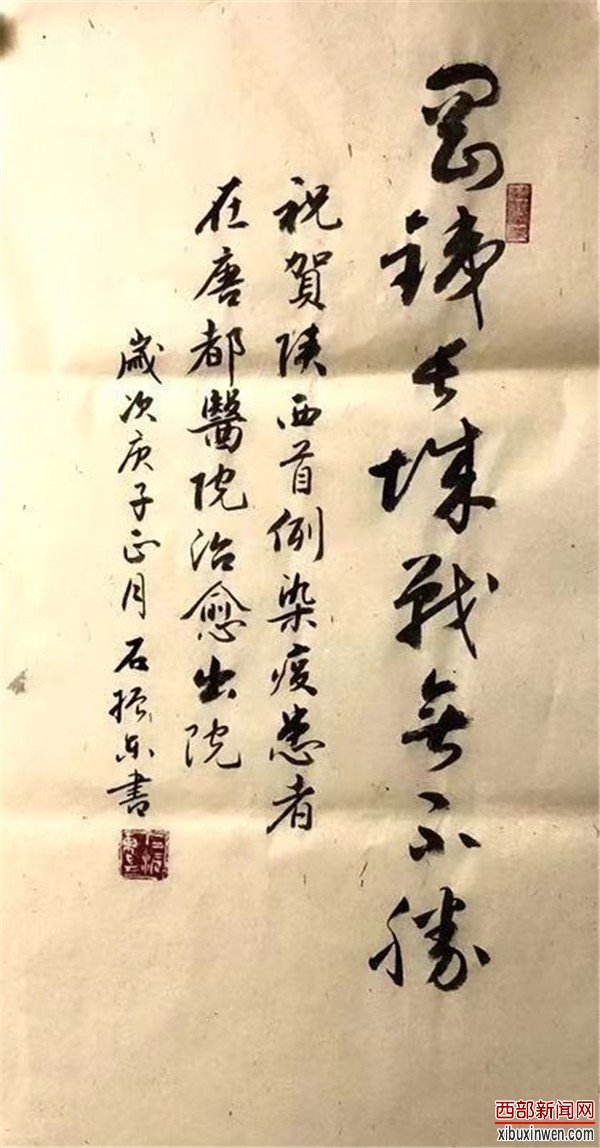 岡鐵長城戰無不勝
祝賀陝西首例染疫患者
在唐都醫院治愈出院
歲次庚子正月石振东書
西部新闻网
xibuxinwen.com